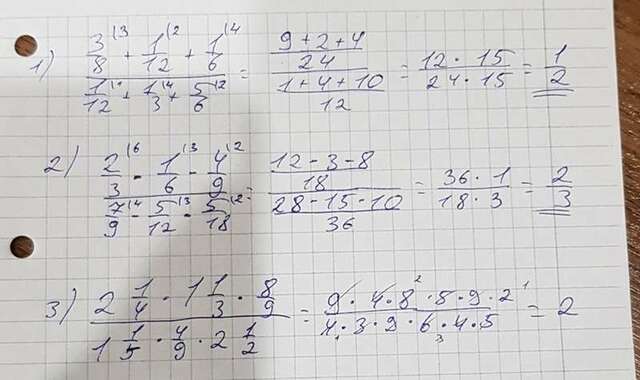 1) (3/8 (3 + 1/12 (2 + 1/6 (4) / (1/12 (1 + 1/3 (4 + 5/6 (2) = ((9+2+4)/24) / ((1+4+10)/12) = (12 · 15)/(24 · 15) = 1/2
2) (2/3 (6 - 1/6 (3 - 4/9 (2) / (7/9 (4 - 5/12 (3 - 5/18 (2) = ((12-3-8)/18) / ((28-15-10)/36) = (36 · 1)/(18 · 3) = 2/3
3) (2 1/4 · 1 1/3 · 8/9) / (1 1/5 · 4/9 · 2 1/2) = (9 · 4 · 8 · 5 · 9 · 2)/(4 · 3 · 9 · 6 · 4 · 5) = 2